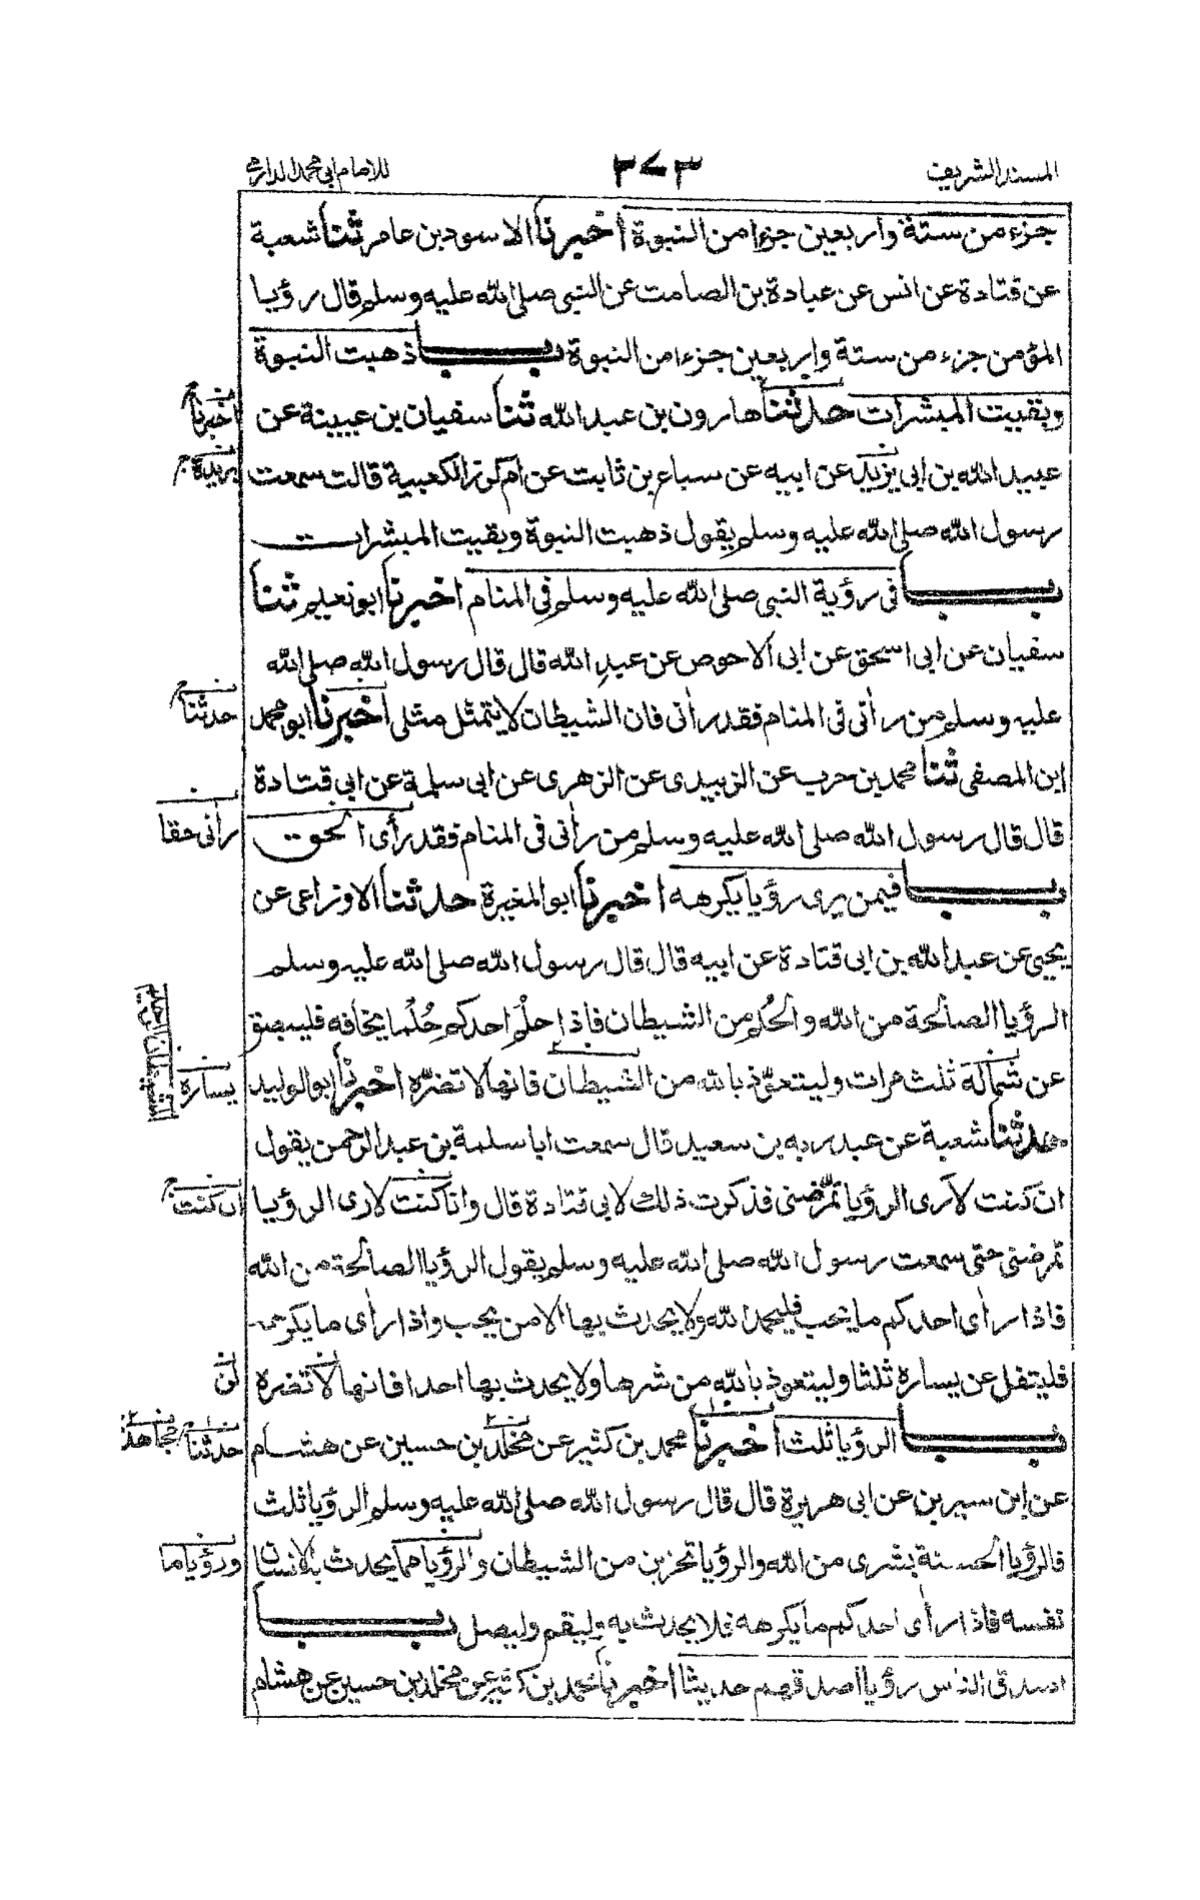 المسند الشريف ٣٧٣ للامام ابى محمد الدارمى
جزء من ستة واربعين جزءا من النبوة اخبرنا الاسود بن عامر ثنا شعبة
عن قتادة عن انس عن عبادة بن الصامت عن النبى صلى الله عليه وسلم قال رؤيا
المؤمن جزء من ستة واربعين جزءا من النبوة باب ذهبت النبوة
وبقيت المبشرات حدثنا هارون بن عبد الله ثنا سفيان بن عيينة عن
اخبرنا
عبيد الله بن ابى يزيد عن ابيه عن سباع بن ثابت عن ام كرز الكعبية قالت سمعت
بريدة
رسول الله صلى الله عليه وسلم يقول ذهبت النبوة وبقيت المبشرات
باب فى رؤية النبى صلى الله عليه وسلم فى المنام اخبرنا ابو نعيم ثنا
سفيان عن ابى اسحق عن ابى الاحوص عن عبد الله قال قال رسول الله صلى الله
عليه وسلم من رأنى فى المنام فقد رأنى فان الشيطان لا يتمثل مثلى اخبرنا ابو محمد
حدثنا
ابن المصفى ثنا محمد بن حرب عن الزبيدى عن الزهرى عن ابى سلمة عن ابى قتادة
قال قال رسول الله صلى الله عليه وسلم من رأنى فى المنام فقد رأى الحق
رأنى حقا
باب فيمن يرى رؤيا يكرهه اخبرنا ابو المغيرة حدثنا الاوزاعى عن
يحيى عن عبد الله بن ابى قتادة عن ابيه قال قال رسول الله صلى الله عليه وسلم
الرؤيا الصالحة من الله والحُلم من الشيطان فاذا حلَم احدكم حُلْما يخافه فليبصق
عن شماله ثلث مرات وليتعوّذ بالله من الشيطان فانها لا تضرّه اخبرنا ابو الوليد
يساره
حدثنا شعبة عن عبد ربه بن سعيد قال سمعت ابا سلمة بن عبد الرحمن يقول
ان كنت لاَرى الرؤيا تمرّضنى فذكرت ذلك لابى قتادة قال وانا كنت لارى الرؤيا
ان كنت
تمرضنى حتى سمعت رسول الله صلى الله عليه وسلم يقول الرؤيا الصالحة من الله
فاذا رأى احدكم ما يحب فليحمد الله ولا يحدث بها الا من يحب واذا رأى ما يكره
فليتفل عن يساره ثلثا وليتعوذ بالله من شرها ولا يحدث بها احدا فانها لا تضره
لن
باب الرؤيا ثلث اخبرنا محمد بن كثير عن مخلد بن حسين عن هشام
حدثنا مجاهد
عن ابن سيرين عن ابى هريرة قال قال رسول الله صلى الله عليه وسلم الرؤيا ثلث
فالرؤيا الحسنة بشرى من الله والرؤيا تحزين من الشيطان والرؤيا مما يحدث به الانسان
ورؤيا ما
نفسه فاذا رأى احدكم ما يكرهه فلا يحدث به وليقم وليصل باب
اصدق الناس رؤيا اصدقهم حديثا اخبرنا محمد بن كثير عن مخلد بن حسين عن هشام